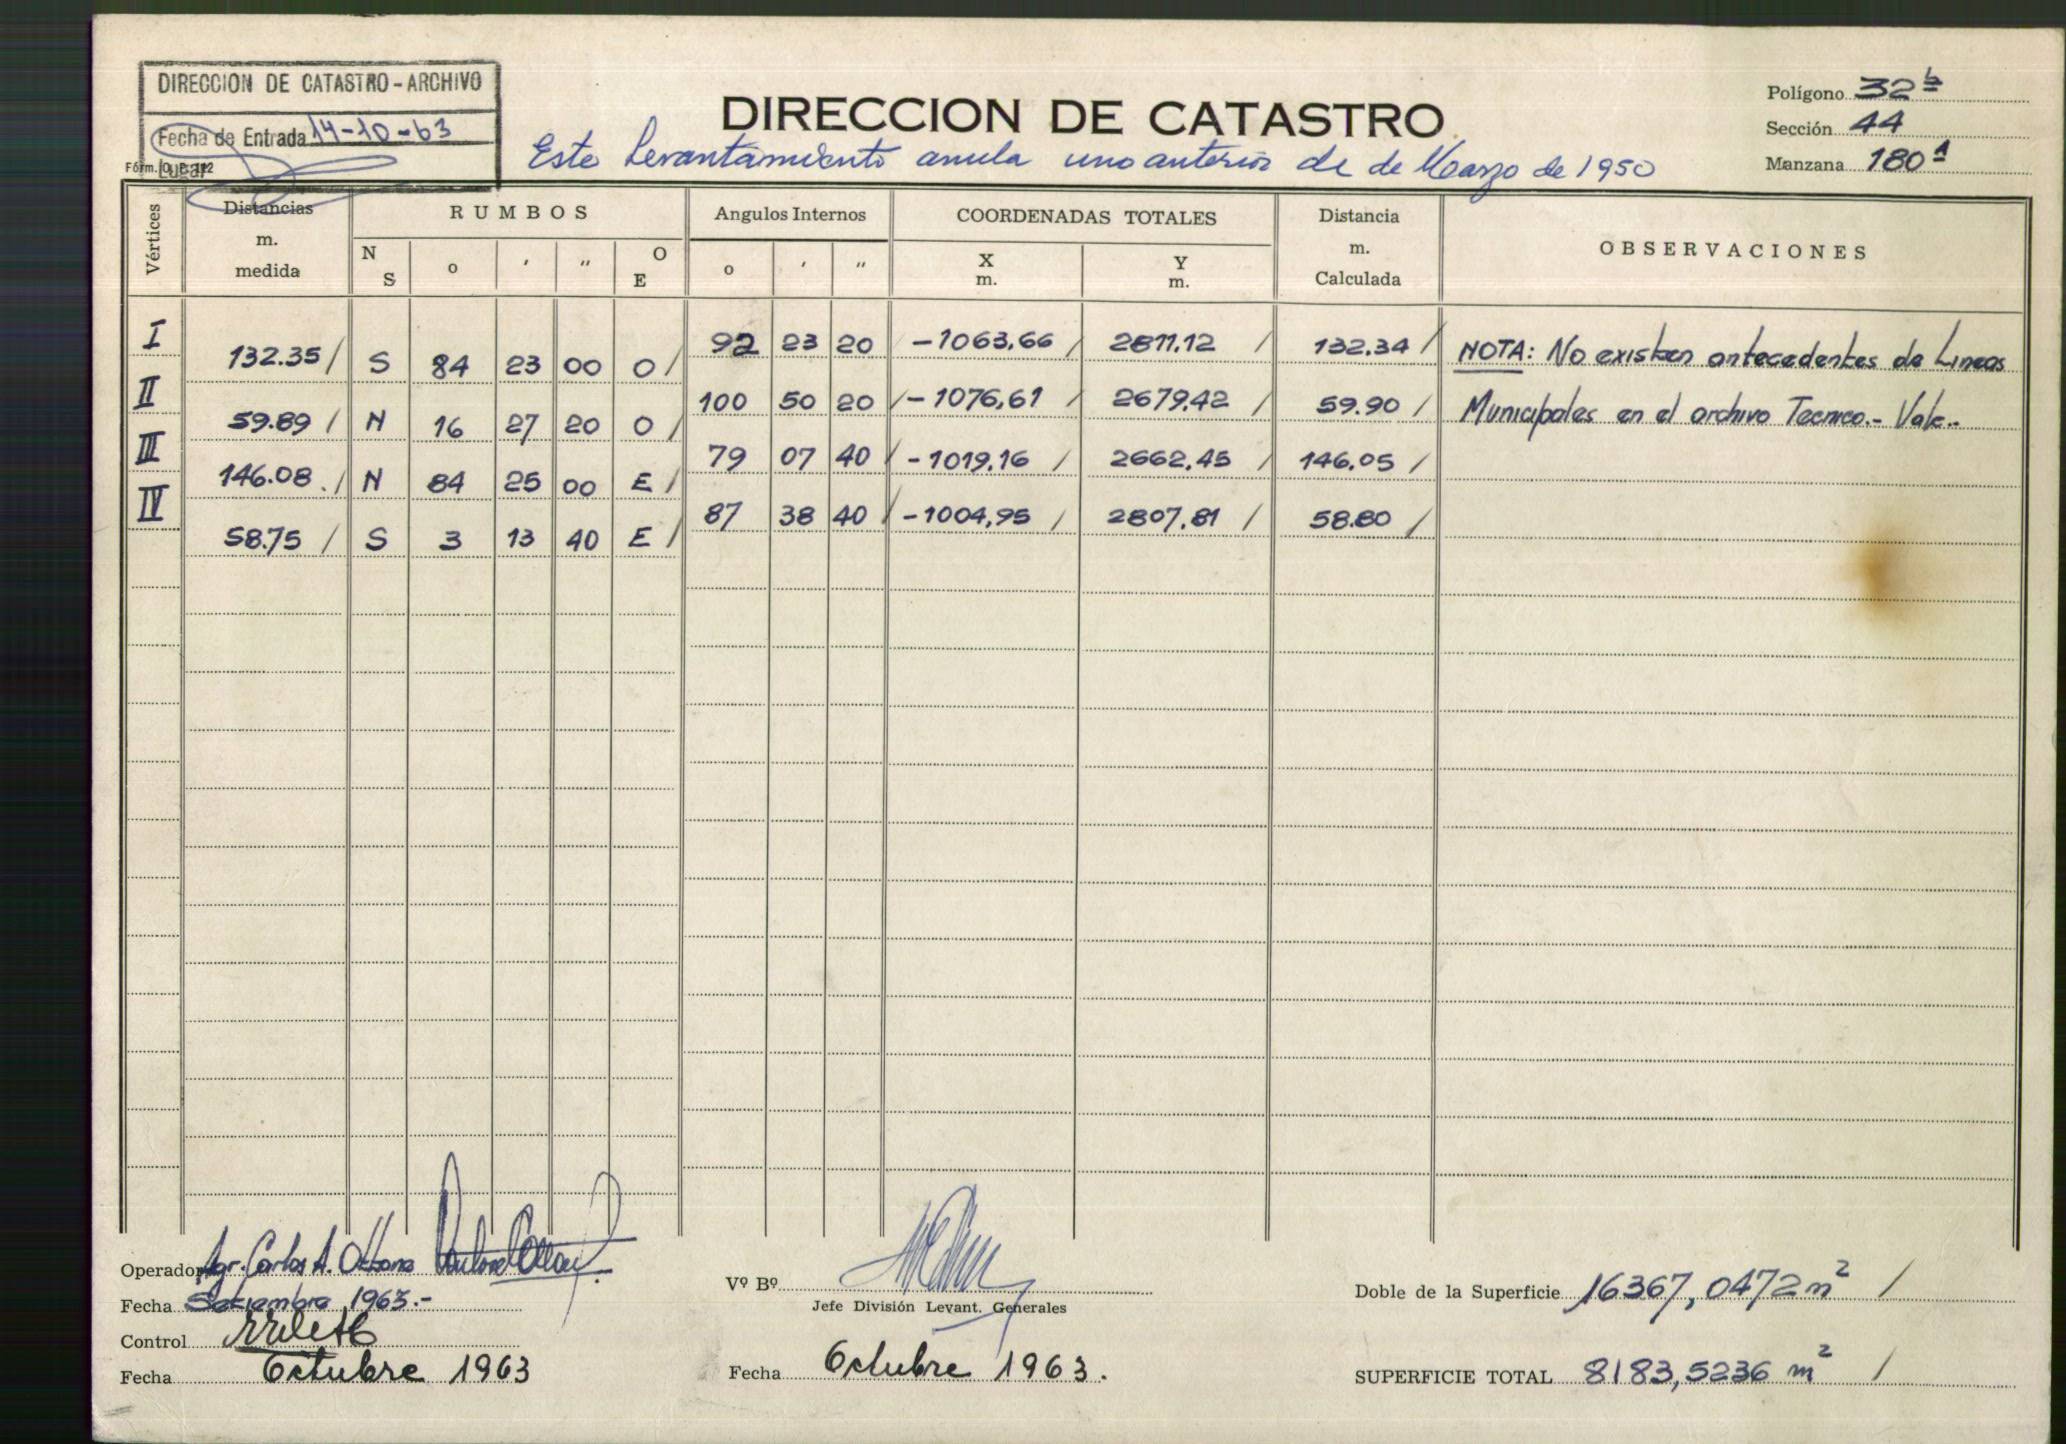 DIRECCION DE CATASTRO - ARCHIVO
Fecha de Entrada 14-10-63
Lugar
Fórm. O. P. 112
DIRECCION DE CATASTRO
Este Levantamiento anula uno anterior de de Marzo de 1950
Polígono 32 b
Sección 44
Manzana 180 A
Vértices Distancias m. medida RUMBOS N S o ′ ″ O E Angulos Internos o ′ ″ COORDENADAS TOTALES X m. Y m. Distancia m. Calculada OBSERVACIONES
I 92 23 20 -1063,66 / 2811.12 / 132.34 / NOTA: No existen antecedentes de Lineas
132.35 / S 84 23 00 O /
II 100 50 20 / -1076,61 / 2679,42 / 59.90 / Municipales en el archivo Tecnico.- Vale.-
59.89 / N 16 27 20 O /
III 79 07 40 / -1019,16 / 2662,45 / 146.05 /
146.08 / N 84 25 00 E /
IV 87 38 40 / -1004,95 / 2807,81 / 58.80 /
58.75 / S 3 13 40 E /
Operador Agr. Carlos A.
Fecha Setiembre 1963.-
Control
Fecha Octubre 1963
Vº Bº
Jefe División Levant. Generales
Fecha Octubre 1963.
Doble de la Superficie 16367,0472 m² /
SUPERFICIE TOTAL 8183,5236 m² /